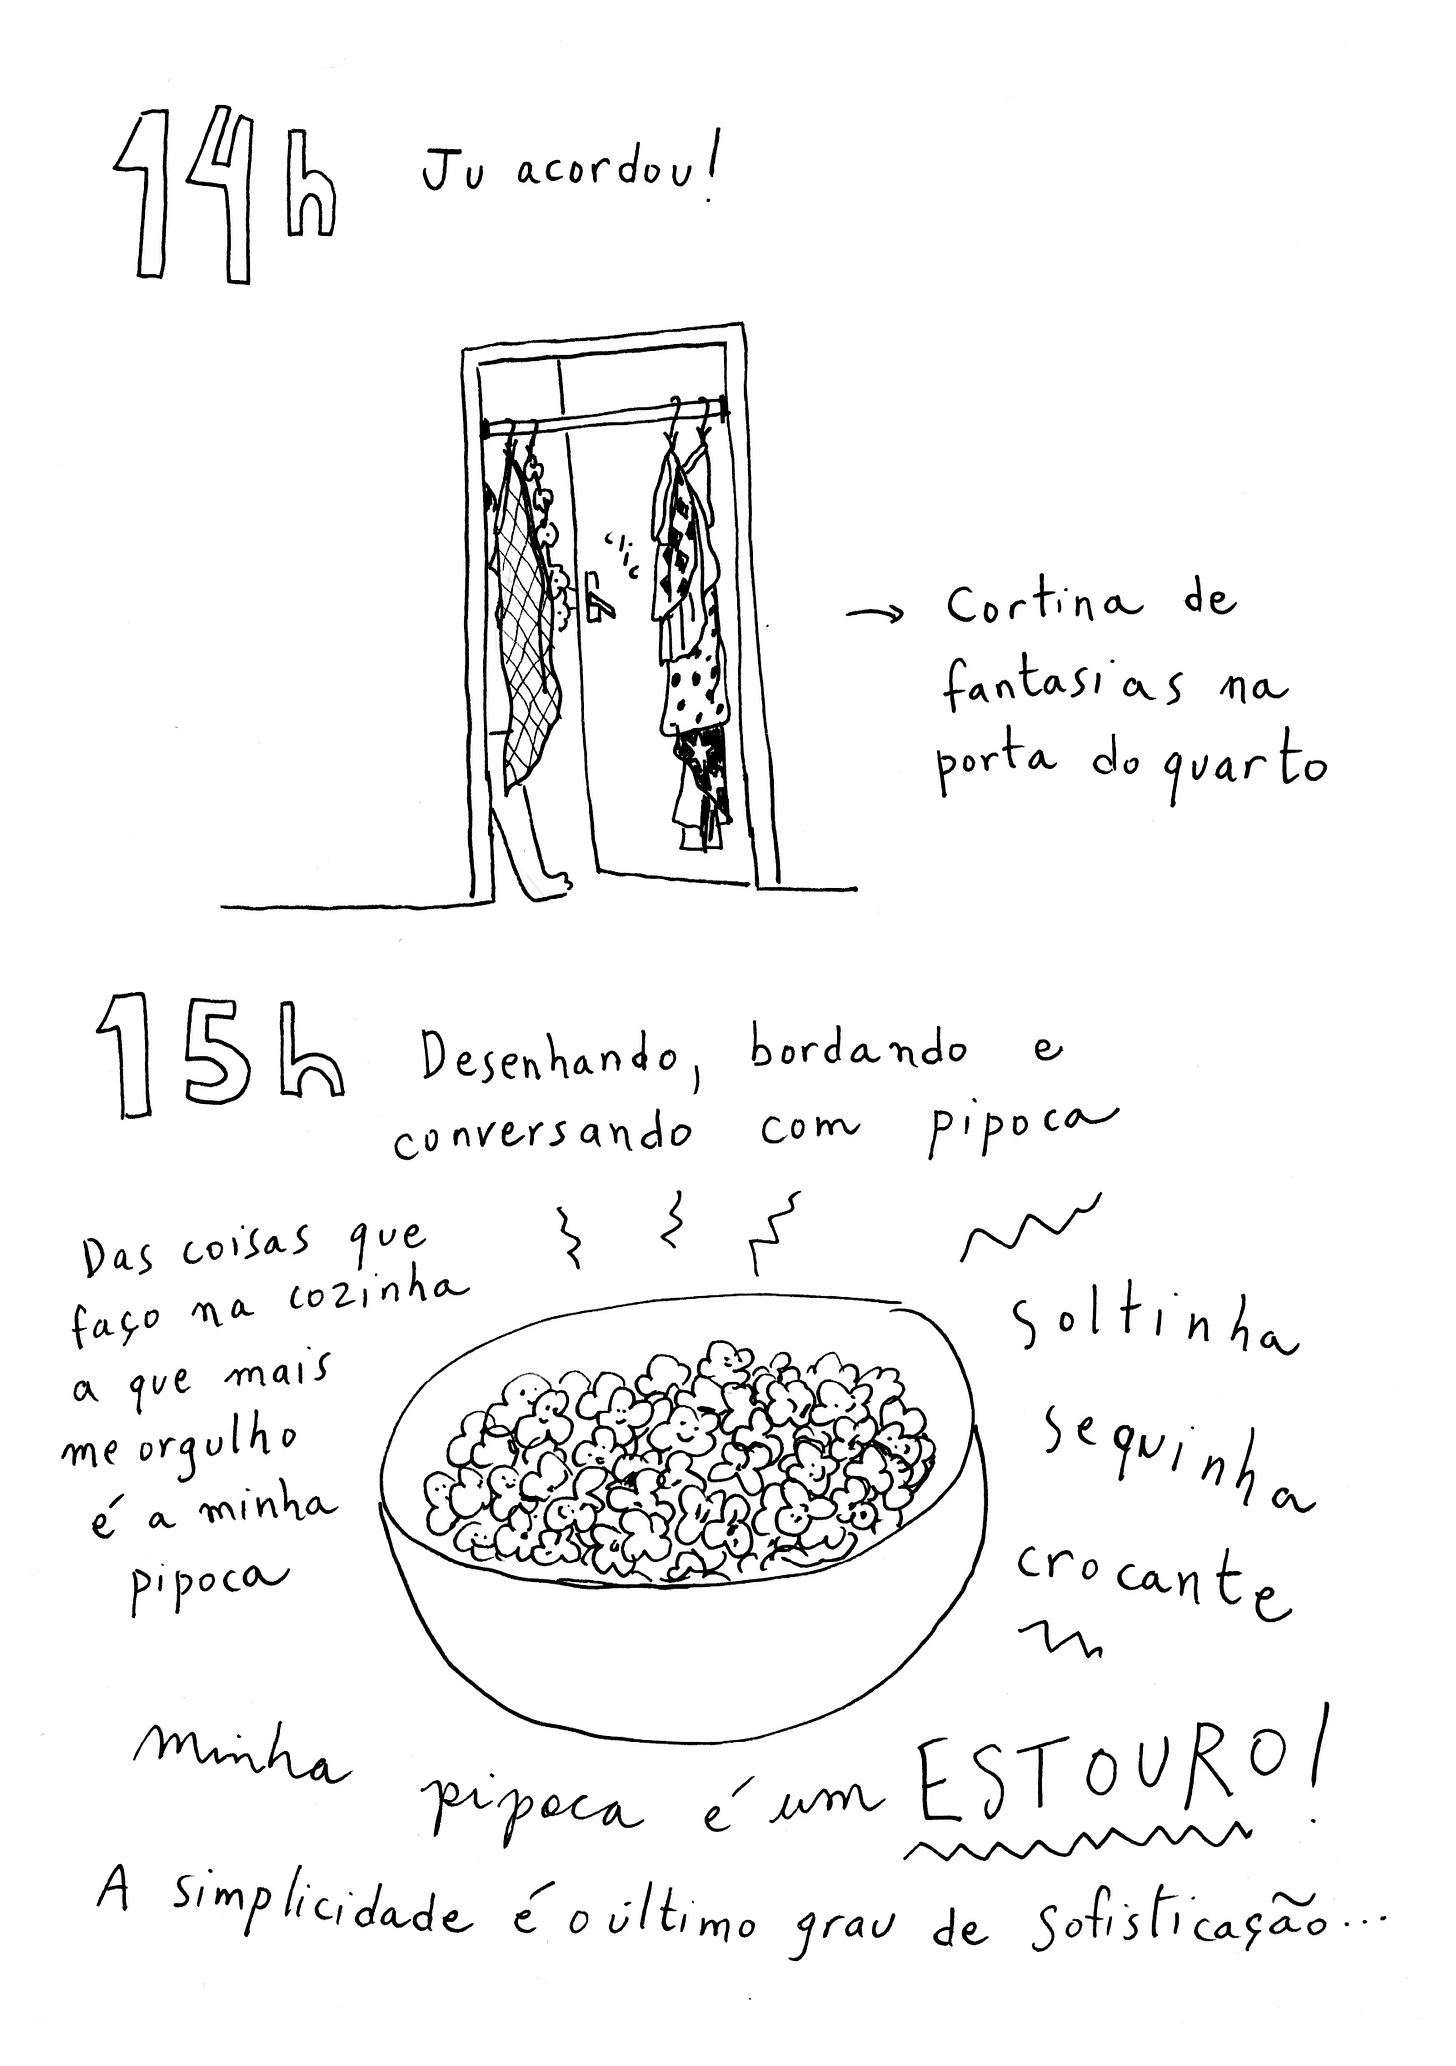 14h Ju acordou!
clic
→ Cortina de
fantasias na
porta do quarto
15h Desenhando, bordando e
conversando com pipoca
Das coisas que
faço na cozinha
a que mais
me orgulho
é a minha
pipoca
soltinha
sequinha
crocante
minha pipoca é um ESTOURO!
A simplicidade é o último grau de sofisticação...